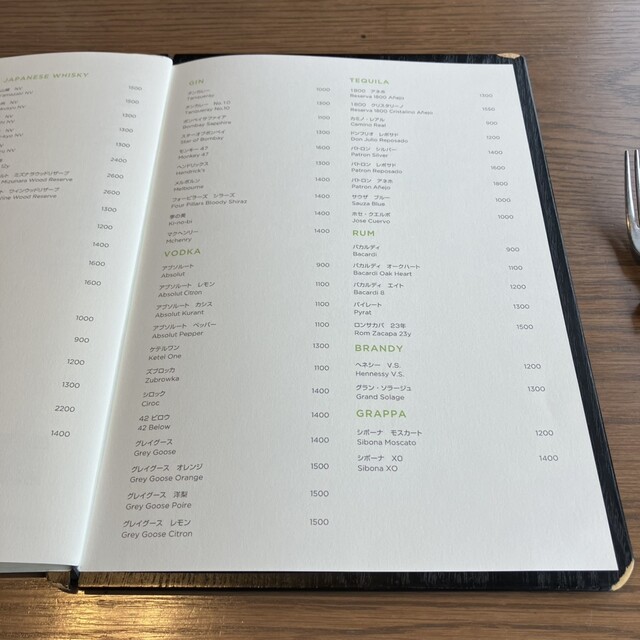 JAPANESE WHISKY
1500
1500
1300
1500
2400
ミズナラウッドリザーブ
Mizunara Wood Reserve 2600
ワインウッドリザーブ
Wine Wood Reserve 2600
1300
1200
1400
1600
1600
1000
900
1200
1300
2200
1400
GIN
タンカレー
Tanqueray 1000
タンカレー No.10
Tanqueray No.10 1300
ボンベイサファイア
Bombay Sapphire 1100
スターオブボンベイ
Star of Bombay 1300
モンキー 47
Monkey 47 1400
ヘンドリックス
Hendrick's 1300
メルボルン
Melbourne 1400
フォーピラーズ シラーズ
Four Pillars Bloody Shiraz 1400
季の美
Ki-no-bi 1400
マクヘンリー
Mchenry 1400
VODKA
アブソルート
Absolut 900
アブソルート レモン
Absolut Citron 1100
アブソルート カシス
Absolut Kurant 1100
アブソルート ペッパー
Absolut Pepper 1100
ケテルワン
Ketel One 1300
ズブロッカ
Zubrowka 1100
シロック
Ciroc 1400
42 ビロウ
42 Below 1400
グレイグース
Grey Goose 1400
グレイグース オレンジ
Grey Goose Orange 1500
グレイグース 洋梨
Grey Goose Poire 1500
グレイグース レモン
Grey Goose Citron 1500
TEQUILA
1800 アネホ
Reserva 1800 Añejo 1300
1800 クリスタリーノ
Reserva 1800 Cristalino Añejo
カミノ・レアル
Camino Real 900
ドンフリオ レポサド
Don Julio Reposado 1200
パトロン シルバー
Patron Silver 1400
パトロン レポサド
Patron Reposado 1500
パトロン アネホ
Patron Añejo 1800
サウザ ブルー
Sauza Blue 1200
ホセ・クエルボ
Jose Cuervo 1000
RUM
バカルディ
Bacardi 900
バカルディ オークハート
Bacardi Oak Heart 1100
バカルディ エイト
Bacardi 8 1200
パイレート
Pyrat 1300
ロンサカパ 23年
Rom Zacapa 23y 1500
BRANDY
ヘネシー V.S.
Hennessy V.S. 1200
グラン・ソラージュ
Grand Solage 1300
GRAPPA
シボーナ モスカート
Sibona Moscato 1200
シボーナ XO
Sibona XO 1400